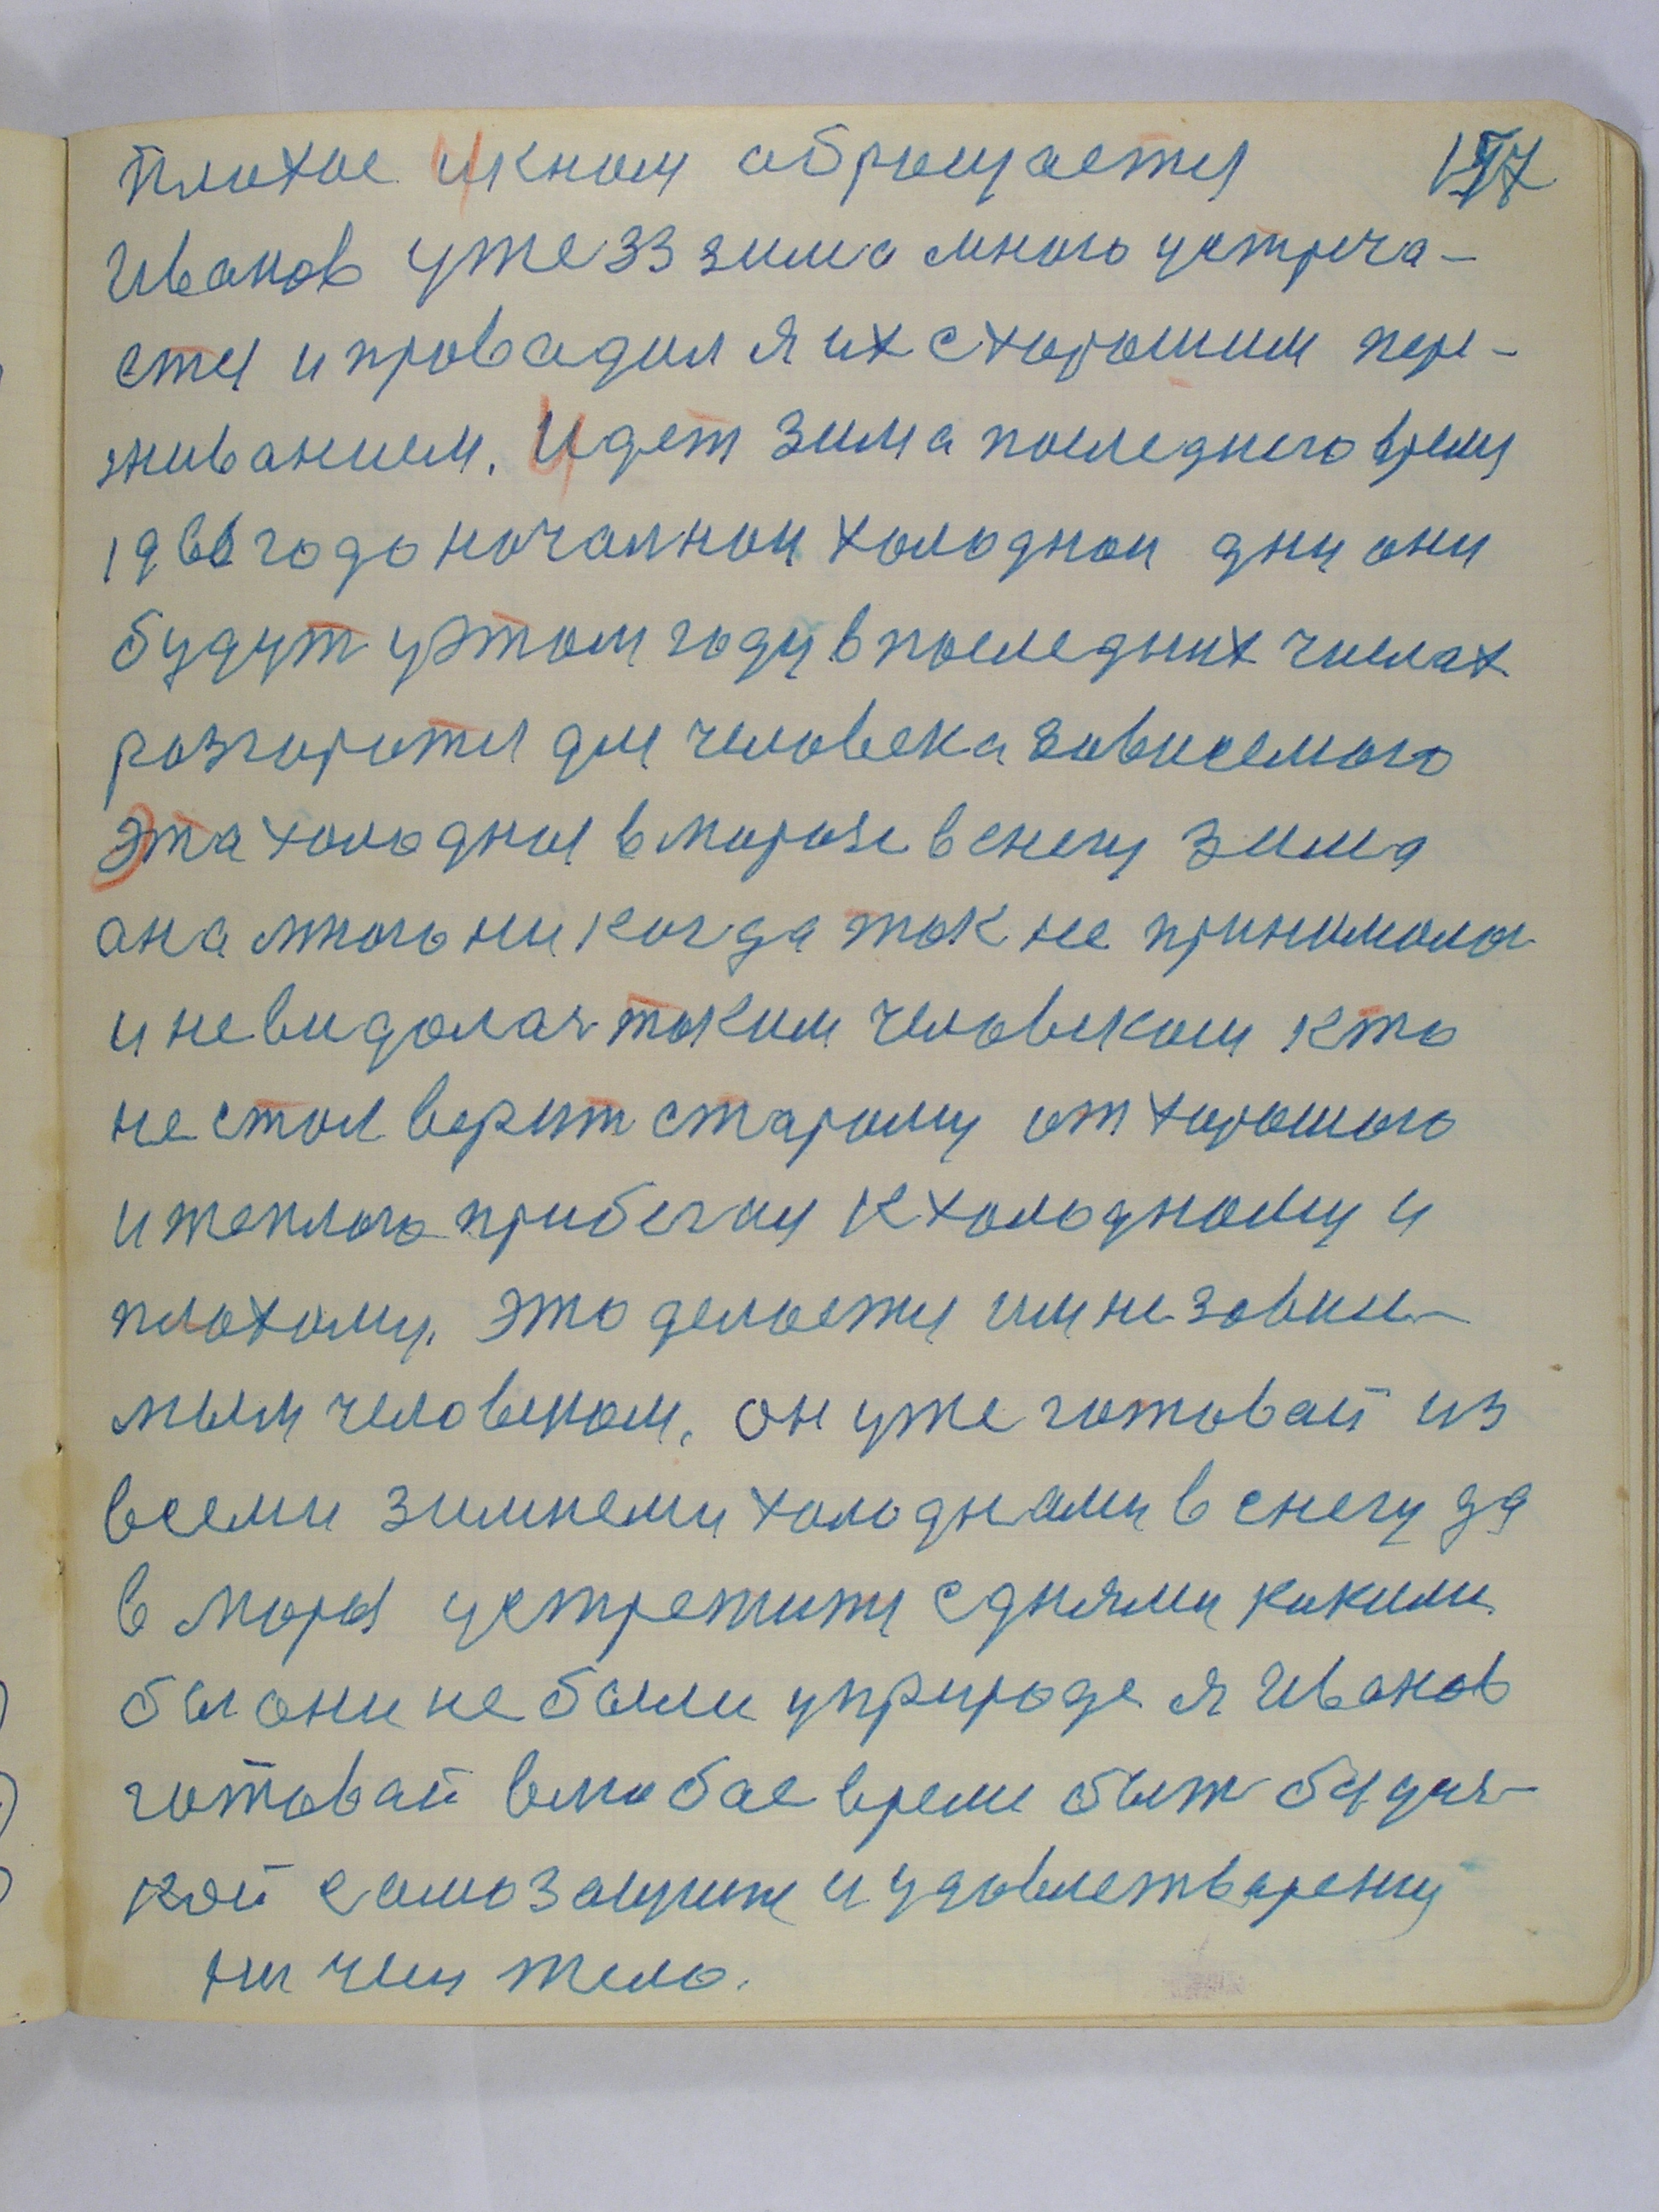 плохое и кном оброщается 197
Иванов уже 33 зима много устреча-
ется и провадил я их с хорошим пере-
живанием. Идет зима последнего время
1966 года началнои холоднои дни они
будут у этом году в последних числах
розгорится для человека зависемого
эта холодная в морозе в снегу зима
она много никогда так не принимолась
и не видалась таким человеком кто
не стал верить старому от хорошого
и теплого прибегая к холодному и
плохому. Это делоется им не зависи-
мым человеком. Он уже готовай из
всеми зимнеми холоднами в снегу да
в мороз устретится с днями какими
бы они не были у природе я Иванов
готовай в любое време быть
кой самозащите и удовлетварению
ни чем тело.